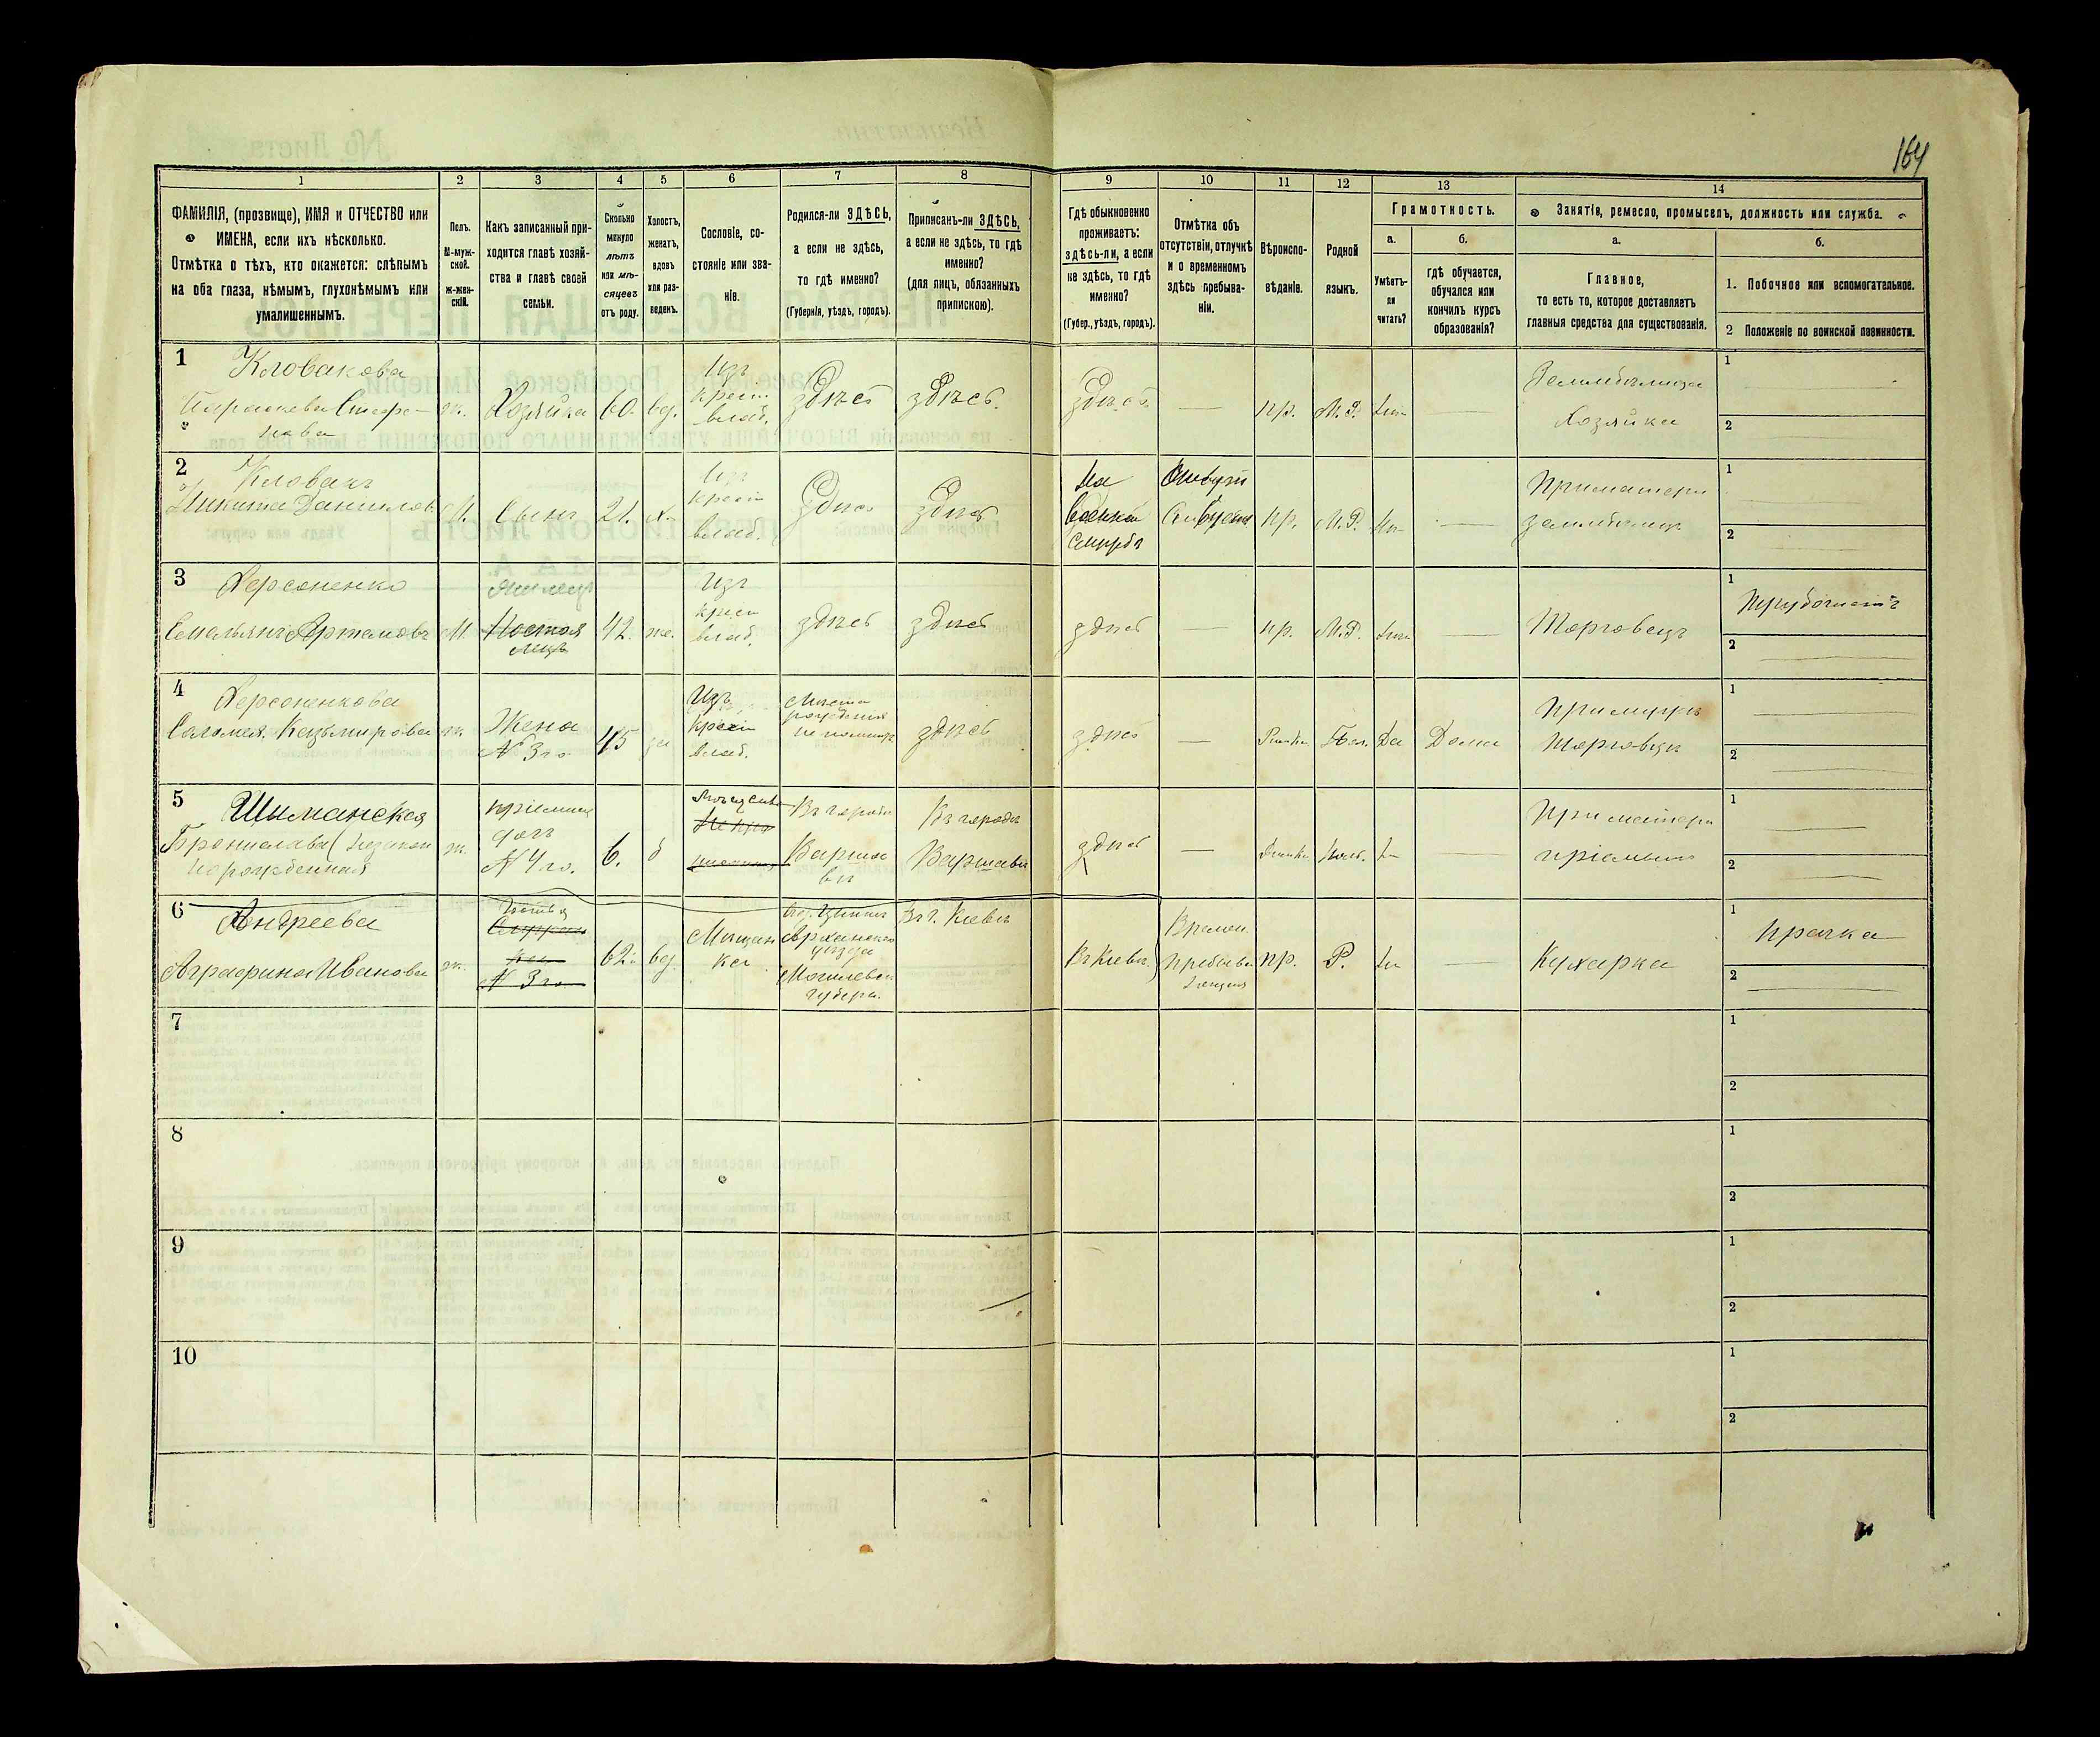 164
1 2 3 4 5 6 7 8 9 10 11 12 13 14
ФАМИЛІЯ, (прозвище), ИМЯ и ОТЧЕСТВО или
ИМЕНА, если ихъ нѣсколько.
Отмѣтка о тѣхъ, кто окажется: слѣпымъ
на оба глаза, нѣмымъ, глухонѣмымъ или
умалишеннымъ.
Полъ.
М-муж-
ской.
Ж-жен-
скій.
Какъ записанный при-
ходится главѣ хозяй-
ства и главѣ своей
семьи.
Сколько
минуло
лѣтъ
или мѣ-
сяцевъ
отъ роду.
Холостъ,
женатъ,
вдовъ
или раз-
веденъ.
Сословіе, со-
стояніе или зва-
ніе.
Родился-ли ЗДѢСЬ,
а если не здѣсь,
то гдѣ именно?
(Губернія, уѣздъ, городъ).
Приписанъ-ли ЗДѢСЬ,
а если не здѣсь, то гдѣ
именно?
(для лицъ, обязанныхъ
припискою).
Гдѣ обыкновенно
проживаетъ:
здѣсь-ли, а если
не здѣсь, то гдѣ
именно?
(Губер., уѣздъ, городъ).
Отмѣтка объ
отсутствіи, отлучкѣ
и о временномъ
здѣсь пребыва-
ніи.
Вѣроиспо-
вѣданіе.
Родной
языкъ.
Грамотность.
а.
Умѣетъ-
ли
читать?
б.
гдѣ обучается,
обучался или
кончилъ курсъ
образованія?
Занятіе, ремесло, промыселъ, должность или служба.
а.
Главное,
то есть то, которое доставляетъ
главныя средства для существованія.
б.
1. Побочное или вспомогательное.
2 Положеніе по воинской повинности.
1
Кловакова
Параскева
ж.
Хозяйка
60.
вд.
Изъ
крест.
влад.
здѣсь
здѣсь
здѣсь
—
пр.
М.Р.
—
Хозяйка
1
2
2
Кловакъ
Никита Данилов.
М.
Сынъ
21.
х.
Изъ
крест.
влад.
здѣсь
здѣсь
На
Военной
Службѣ
пр.
М.Р.
—
При матери
1
2
3
Херсоненко
Емельянъ Артемовъ
М.
42.
же.
Изъ
крест.
влад.
здѣсь
здѣсь
здѣсь
—
пр.
М.Р.
—
Торговецъ
1
2
4
Херсоненкова
Саломея Казьмирова
ж.
Жена
N 3го
45
за
Изъ
крест.
влад.
Мѣста
рожденія
не помнитъ
здѣсь
здѣсь
—
Пол.
Да
Дома
При мужѣ
1
2
5
Шыманская
Бронислава (Незакон
норожденная
ж.
дочь
N 4го.
6.
Въ городѣ
Варша
вѣ
Къ городу
Варшавѣ
здѣсь
—
При матери
1
2
6
Андреева
Аграфина Иванова
ж.
N 3го
62.
вд.
Мѣщан
ка
уѣзда
Могилевск
губерн.
Въ г. Кіевѣ
Въ Кіевѣ
Времен.
пребыва
ющая
пр.
Р.
—
Кухарка
1
Прачка
2
7
1
2
8
1
2
9
1
2
10
1
2